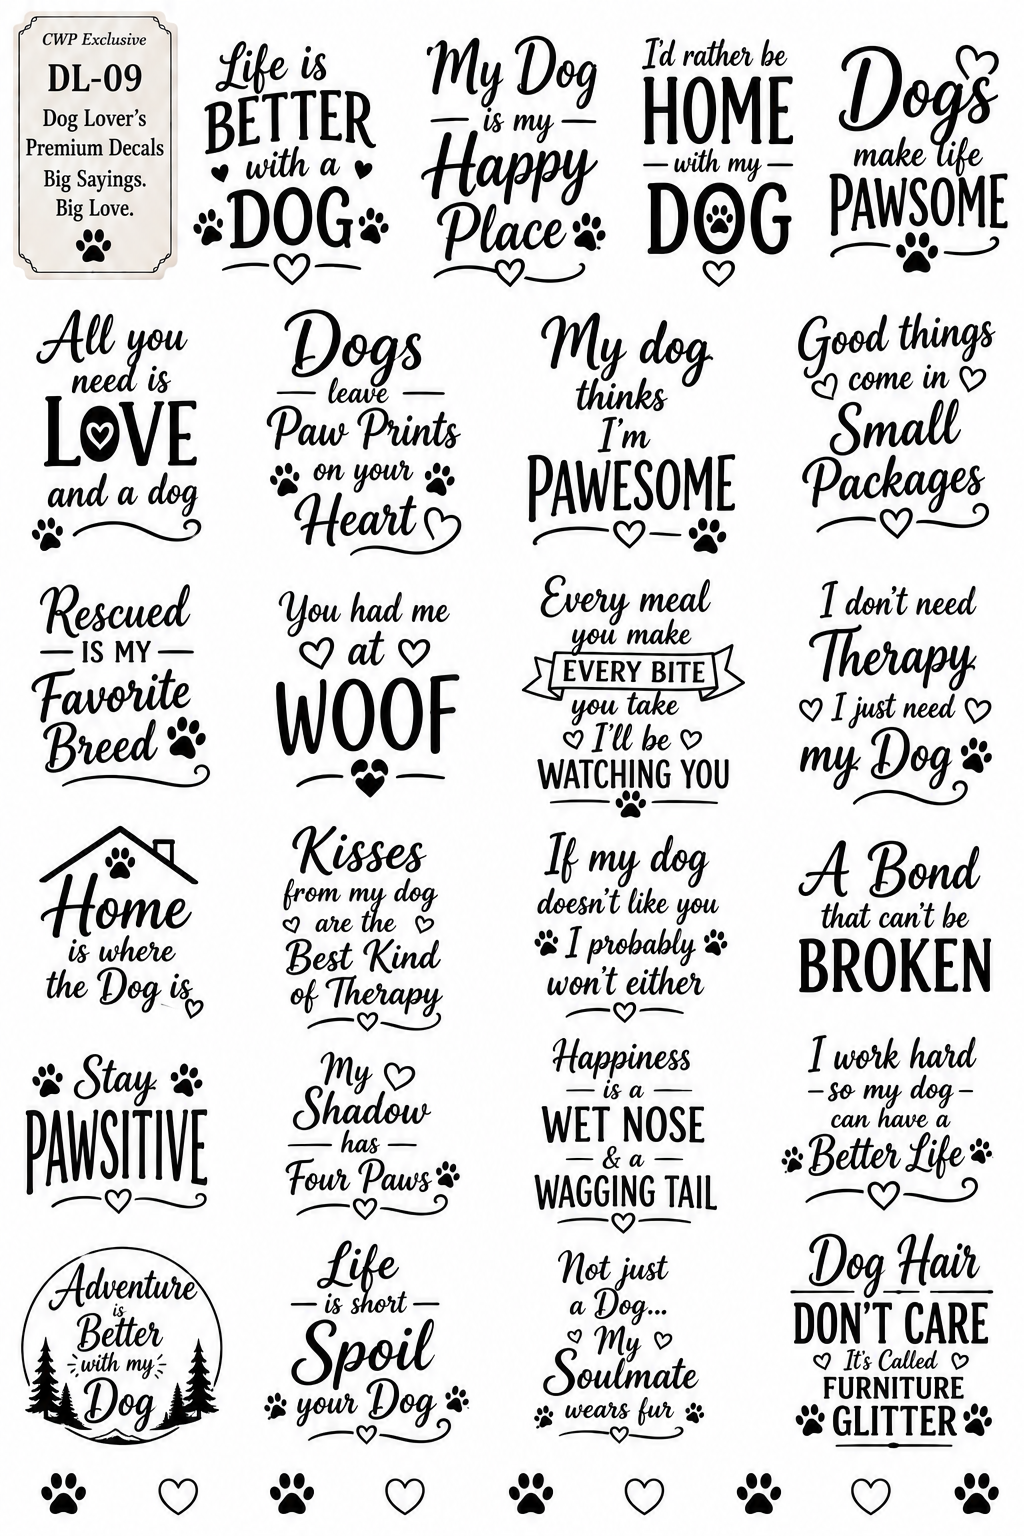 CWP Exclusive
DL-09
Dog Lover's
Premium Decals
Big Sayings.
Big Love.
Life is
BETTER
with a
DOG
My Dog
is my
Happy
Place
I'd rather be
HOME
with my
DOG
Dogs
make life
PAWSOME
All you
need is
LOVE
and a dog
Dogs
leave
Paw Prints
on your
Heart
My dog
thinks
I'm
PAWESOME
Good things
come in
Small
Packages
Rescued
IS MY
Favorite
Breed
You had me
at
WOOF
Every meal
you make
EVERY BITE
you take
I'll be
WATCHING YOU
I don't need
Therapy
I just need
my Dog
Home
is where
the Dog is
Kisses
from my dog
are the
Best Kind
of Therapy
If my dog
doesn't like you
I probably
won't either
A Bond
that can't be
BROKEN
Stay
PAWSITIVE
My
Shadow
has
Four Paws
Happiness
is a
WET NOSE
& a
WAGGING TAIL
I work hard
so my dog
can have a
Better Life
Adventure
is
Better
with my
Dog
Life
is short
Spoil
your Dog
Not just
a Dog...
My
Soulmate
wears fur
Dog Hair
DON'T CARE
It's Called
FURNITURE
GLITTER